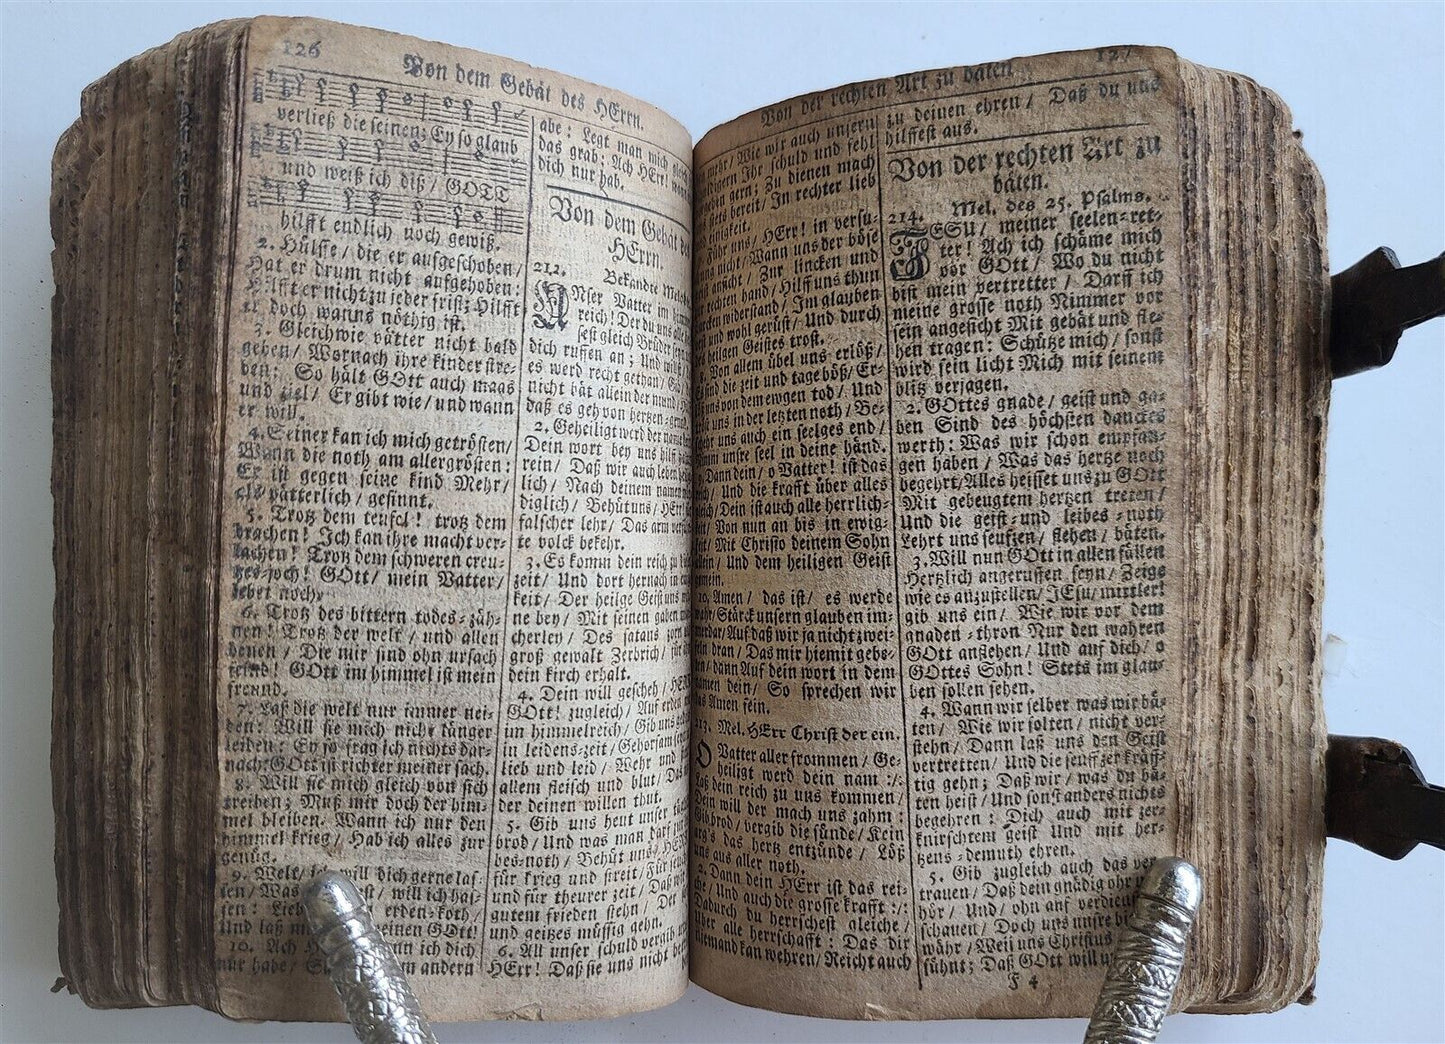 126
Von dem Gebät des HErrn.
verließ die seinen; Ey so glaub
und weiß ich diß / GOTT
hilfft endlich noch gewiß.
2. Hülffe / die er aufgeschoben /
Hat er drum nicht aufgehoben:
Hilfft er nicht zu jeder frist; Hilfft
er doch wanns nöthig ist.
3. Gleichwie vätter nicht bald
geben / Wornach ihre kinder stre-
ben: So hält GOtt auch maas
und ziel / Er gibt wie / und wann
er will.
4. Seiner kan ich mich getrösten /
Wann die noth am allergrösten:
Er ist gegen seine kind Mehr /
als vätterlich / gesinnt.
5. Trotz dem teufel! trotz dem
drachen! Ich kan ihre macht ver-
lachen! Trotz dem schweren creu-
tzes-joch! GOtt / mein Vatter /
lebet noch.
6. Trotz des bittern todes-zäh-
nen! Trotz der welt / und allen
denen / Die mir sind ohn ursach
feind! GOtt im himmel ist mein
freund.
7. Laß die welt nur immer nei-
den: Will sie mich nicht länger
leiden: Ey so frag ich nichts dar-
nach: GOtt ist richter meiner sach.
8. Will sie mich gleich von sich
treiben; Muß mir doch der him-
mel bleiben / Wann ich nur den
himmel krieg / Hab ich alles zur
genüg.
9. Welt / ich will dich gerne las-
sen / Was
st / will ich has-
sen: Lieb
erden-koth /
Und laß
meinen GOtt!
10. Ach
ich dich
nur habe /
andern
abe: Legt man mich gleich
das grab; Ach HErr! wann
dich nur hab.
Von dem Gebät des
HErrn.
212. Bekandte Melod
UNser Vatter im himm
reich! Der du uns alle
sest gleich Brüder seyn
dich ruffen an; Und wilt
es werd recht gethan /
nicht bät allein der mund /
daß es geh von hertzen-grund.
2. Geheiligt werd der name
Dein wort bey uns hilf
rein / Daß wir auch leben
lich / Nach deinem namen
diglich / Behüt uns / HErr!
falscher lehr / Das arm verführ-
te volck bekehr.
3. Es komm dein reich zu
zeit / Und dort hernach in
keit / Der heilge Geist uns
ne bey / Mit seinen gaben
cherley / Des satans zorn
groß gewalt Zerbrich / für
dein kirch erhalt.
4. Dein will gescheh /
GOtt! zugleich / Auf erden
im himmelreich / Gib uns
in leidens-zeit / Gehorsam
lieb und leid / Wehr und
allem fleisch und blut / Das
der deinen willen thut.
5. Gib uns heut unser
brod / Und was man darf
bes-noth / Behüt uns /
für krieg und streit / Für
und für theurer zeit / Daß wir
gutem frieden stehn / Der
und geitzes müssig gehn.
6. All unser schuld vergib
HErr! Daß sie uns nicht
127
Von der rechten Art zu bäten.
mehr / Wie wir auch unsern
schuldigern Ihr schuld und fehl
gern; Zu dienen mach
stets bereit / In rechter lieb
einigkeit.
Führ uns / HErr! in versu-
nicht / Wann uns der böse
anficht / Zur lincken und
rechten hand / Hilff uns thun
starcken widerstand / Im glauben
und wohl gerüst / Und durch
heiligen Geistes trost.
Von allem übel uns erlöß /
sind die zeit und tage böß / Er-
uns von dem ewgen tod / Und
uns in der letzten noth / Be-
uns auch ein seelges end /
Nimm unsre seel in deine händ.
Dann dein / o Vatter! ist das
reich / Und die krafft über alles
gleich / Dein ist auch alle herrlich-
keit / Von nun an bis in ewig-
keit / Mit Christo deinem Sohn
allein / Und dem heiligen Geist
gemein.
10. Amen / das ist / es werde
wahr / Stärck unsern glauben im-
merdar / Auf daß wir ja nicht zwei-
feln dran / Das wir hiemit gebe-
ten / dann Auf dein wort in dem
namen dein / So sprechen wir
das Amen fein.
213. Mel. HErr Christ der ein.
O Vatter aller frommen / Ge-
heiligt werd dein nam :/:
Laß dein reich zu uns kommen /
Dein will der mach uns zahm:
Gib brod / vergib die sünde / Kein
arg's das hertz entzünde / Löß
uns aus aller noth.
2. Dann dein HErr ist das rei-
che / Und auch die grosse krafft :/:
Dadurch du herrschest gleiche /
Uber alle herrschafft: Das dir
niemand kan wehren / Reicht auch
zu deinen ehren / Daß du uns
hilffest aus.
Von der rechten Art zu
bäten.
214. Mel. des 25. Psalms.
JESU / meiner seelen-ret-
ter! Ach ich schäme mich
vor GOtt / Wo du nicht
bist mein vertretter / Darff ich
meine grosse noth Nimmer vor
sein angesicht Mit gebät und fle-
hen tragen: Schütze mich / sonst
wird sein licht Mich mit seinem
blitz verjagen.
2. GOttes gnade / geist und ga-
ben Sind des höchsten danckes
werth: Was wir schon empfan-
gen haben / Was das hertze noch
begehrt / Alles heisset uns zu GOtt
Mit gebeugtem hertzen tretten /
Und die geist- und leibes-noth
Lehrt uns seufzen / flehen / bäten.
3. Will nun GOtt in allen fällen
Hertzlich angeruffen seyn / Zeige
wie es anzustellen / JEsu / mittler!
gib uns ein / Wie wir vor dem
gnaden-thron Nur den wahren
GOtt anflehen / Und auf dich / o
GOttes Sohn! Stets im glau-
ben sollen sehen.
4. Wann wir selber was wir bä-
ten / Wie wir solten / nicht ver-
stehn / Dann laß uns den Geist
vertretten / Und die seuffzer kräff-
tig gehn; Daß wir / was du bä-
ten heist / Und sonst anders nichts
begehren: Dich auch mit zer-
knirschtem geist Und mit her-
tzens-demuth ehren.
5. Gib zugleich auch das ver-
trauen / Daß dein gnädig ohr
hör / Und / ohn auf verdienst
schauen / Doch uns unsre
währ / Weil uns Christus
sühnt; Daß GOtt will
F 4